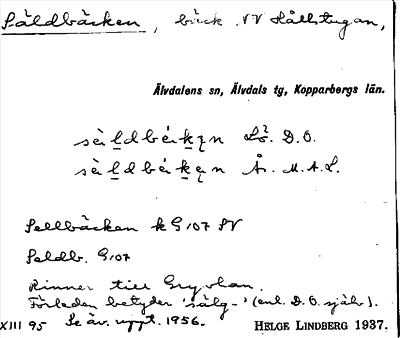 Säldbäcken, bäck NV Hållstugan,
Älvdalens sn, Älvdals tg, Kopparbergs län.
D. O.
Å. M. A. L.
Sellbäcken k G 107 SV
Seldb. G 107
Rinner till Gryvlan.
Förleden betyder 'sälg-' (enl. D. O. själv).
XIII 95 Se äv. uppt. 1956. HELGE LINDBERG 1937.